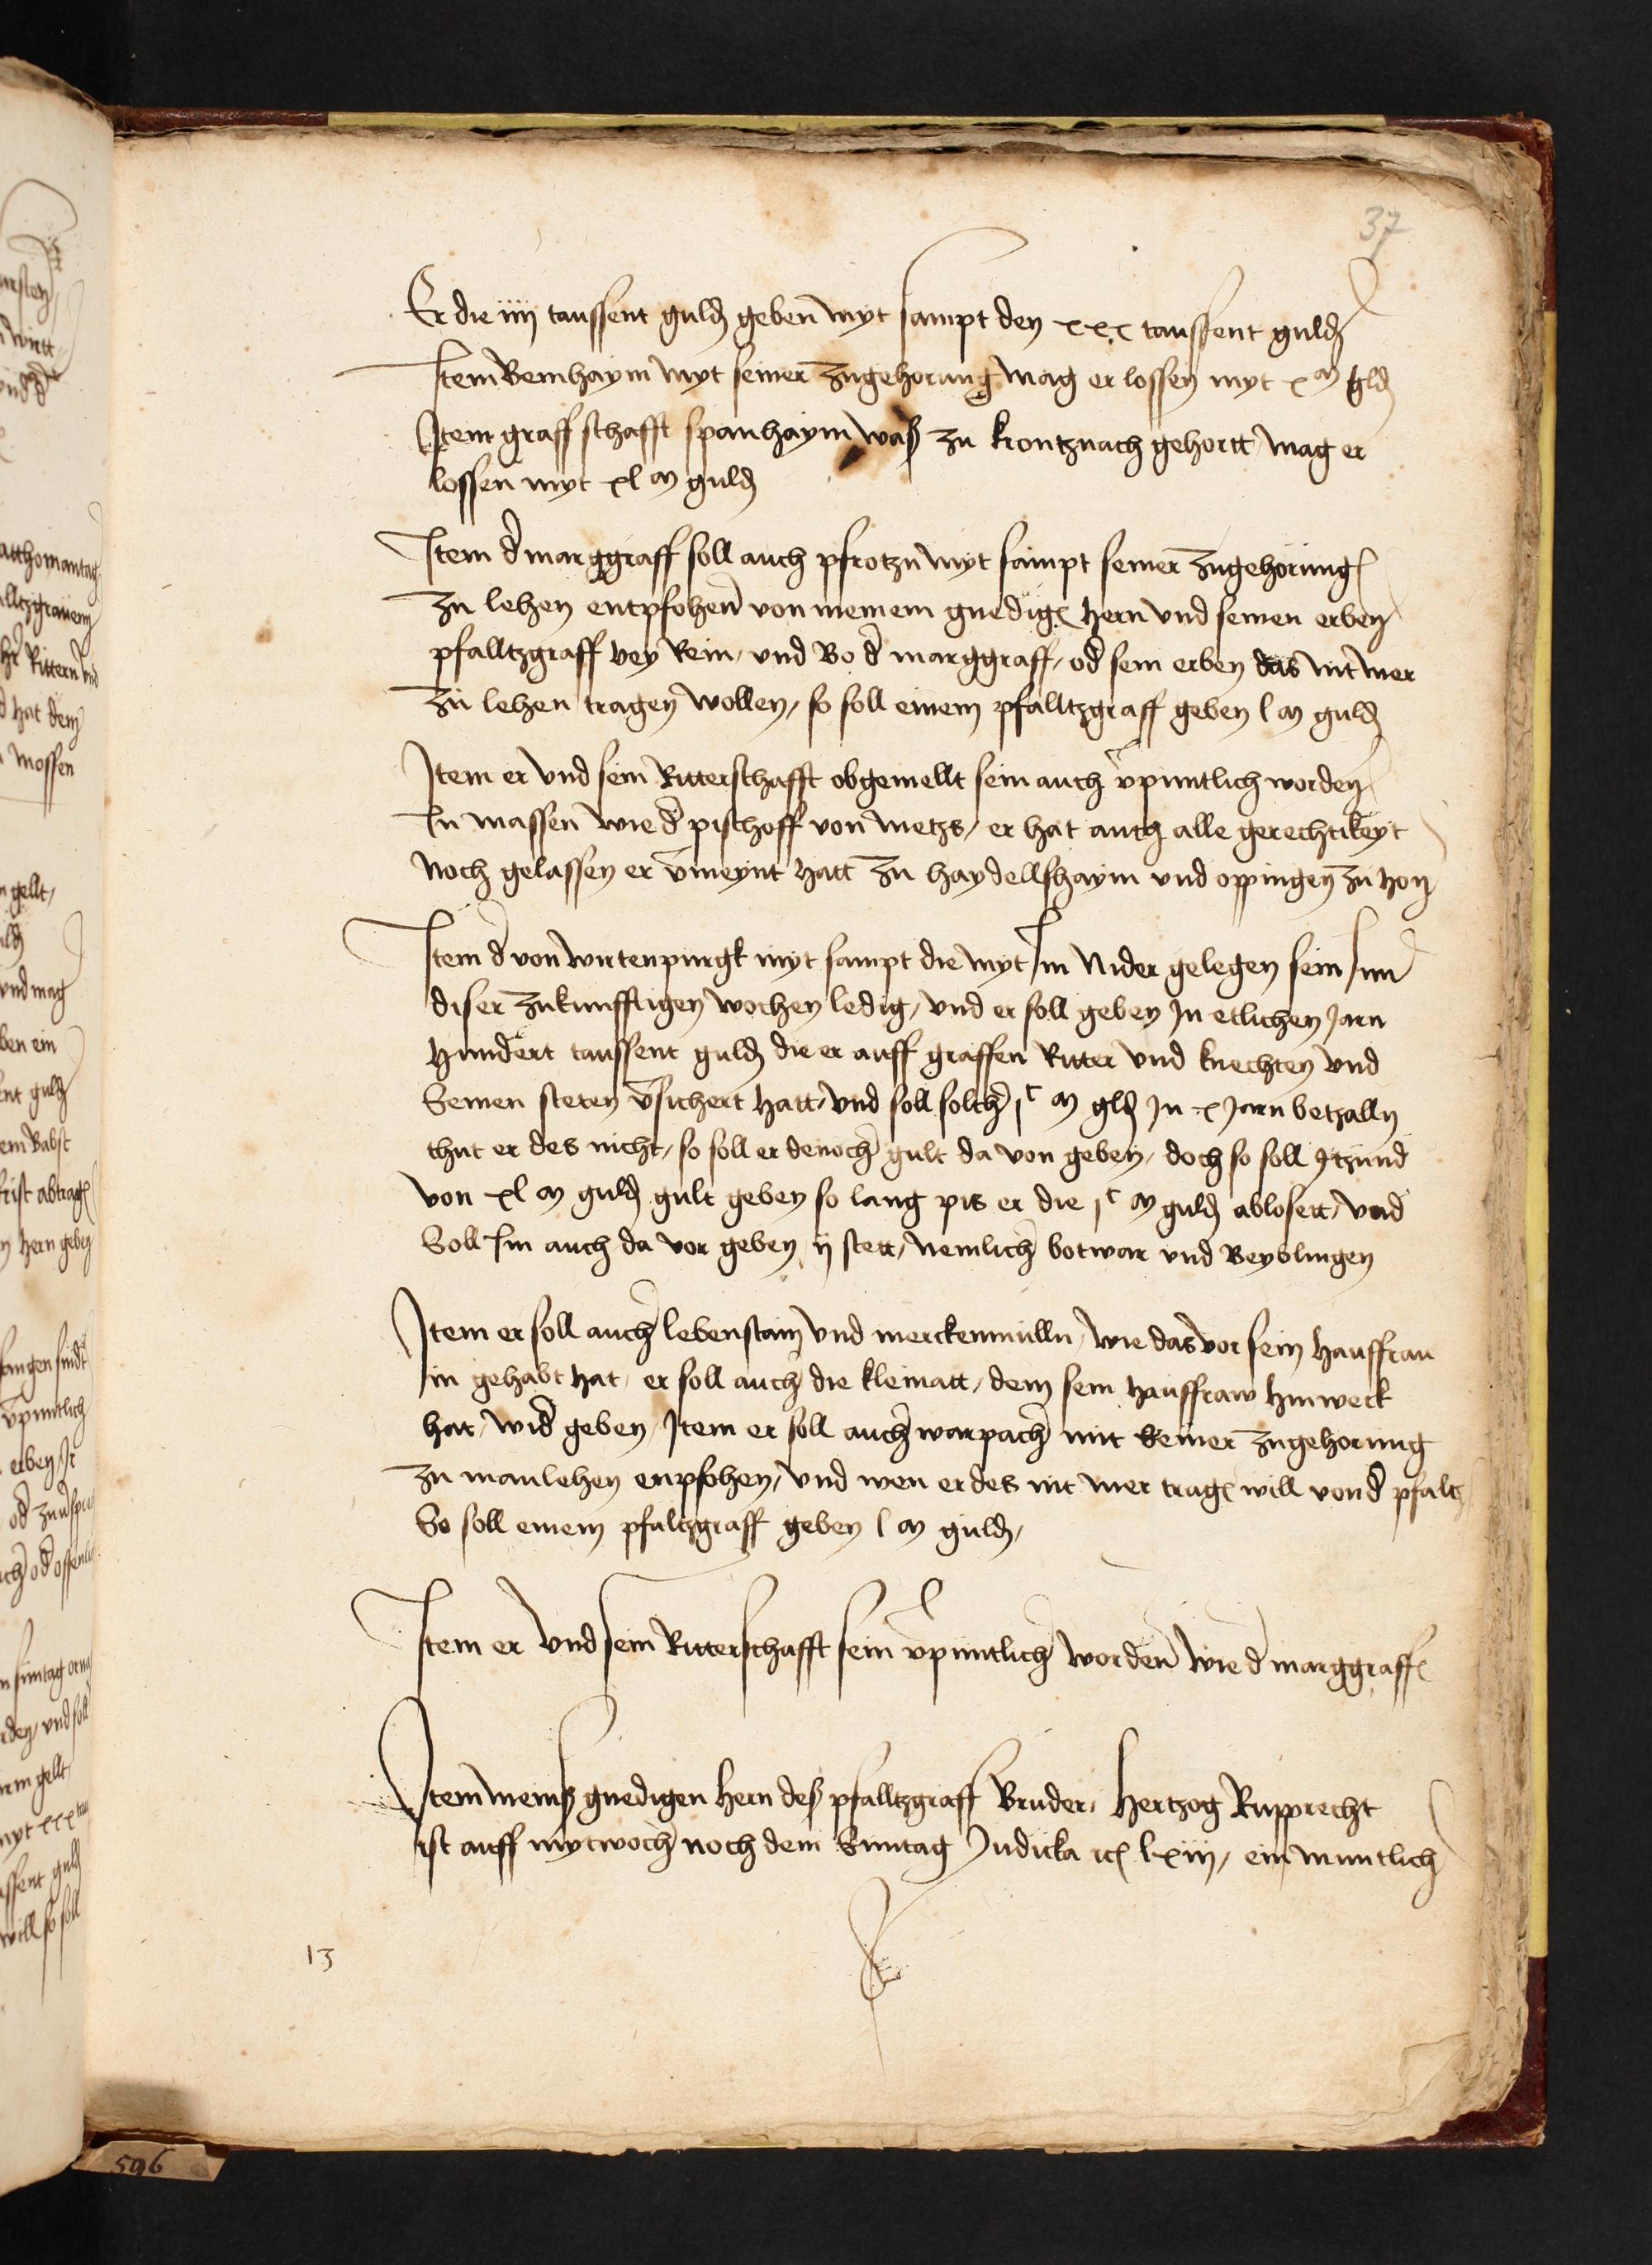 37
Er die iiij taussent guld geben myt sampt den xxx taussent guld
Item Beinhaym myt seiner zugehorung mag er lossen myt x m gld
Item graffschafft spanhaym waß zu krontznach gehortt mag er
lossen myt xl m guld
Item d marggraff soll auch pfrotzn myt sampt seiner zugehorung
zu lehen entpfohen von meinem gnedig hern vnd seinen erben
pfalltzgraff bey Rein, vnd Wo d marggraff, od sein erben das nit mer
zu lehen tragen wollen, so soll einem pfalltzgraff geben l m guld
Item er vnd sein Ritterschafft obgemellt sein auch vpuntlich worden
In massen wie d pischoff von metzs, er hat auch alle gerechtikeyt
noch gelassen er vmeynt hatt zu haydellshaym vnd oppingen zu hon
Item d von wirtenpurgk myt sampt die myt Im Nider gelegen sein Inn
diser zukunfftigen wochen ledig, vnd er soll geben In etlichen Jarn
Hundert taussent guld die er auff graffen Ritter vnd knechten vnd
Seinen steten vsichert hatt, vnd soll solch jc m gld In x Jarn betzalln
thut er des nicht, so soll er denoch gult da von geben, doch so soll ytzund
von xl m guld gult geben so lang pis er die jc m guld ablosett, vnd
Soll Im auch da vor geben ij stett, nemlich botwar vnd Beyblingen
Item er soll auch lebenstain vnd merckenmulln, wie das vor sein hauffrau
in gehabt hat, er soll auch die kleinatt, dem sein hauffraw hinweck
hat, wid geben, Item er soll auch marpach mit seiner zugehorung
zu manlehen enpfohen, vnd wen er des nit mer trag will von d pfaltz
So soll einem pfaltzgraff geben l m guld,
Item er vnd sein Ritterschafft sein vpuntlich worden wie d marggraff
Item meinß gnedigen hern deß pfalltzgraff Bruder, Hertzog Rupprecht
ist auff mytwoch noch dem Suntag Judicka ic lxiij, ein muntlich
13
596